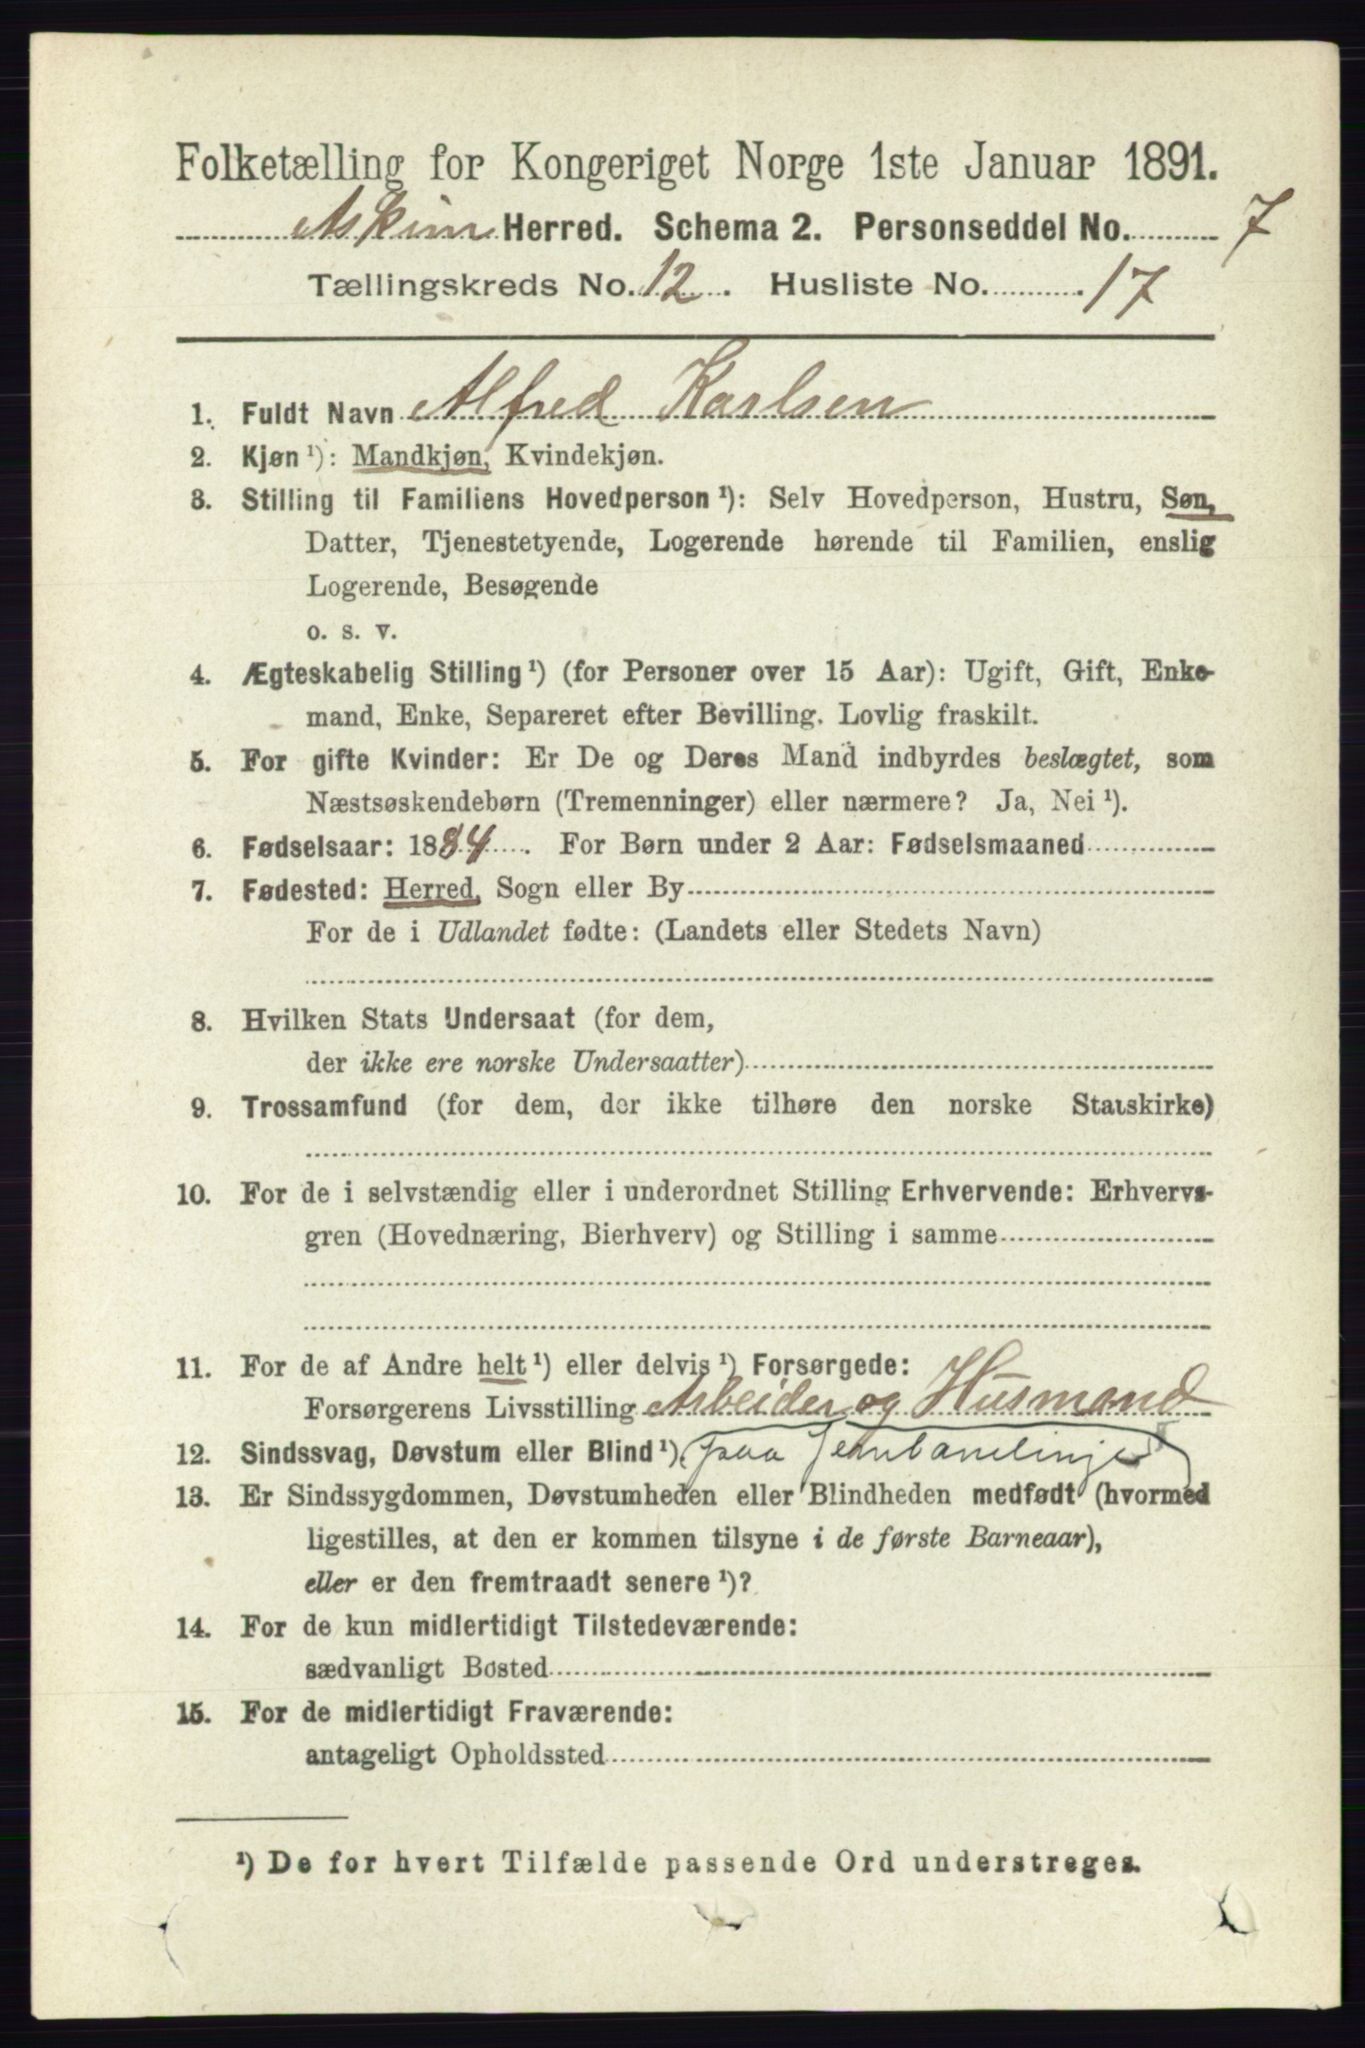 Folketælling for Kongeriget Norge 1ste Januar 1891.
Askim Herred. Schema 2. Personseddel No. 7
Tællingskreds No. 12. Husliste No. 17
1. Fuldt Navn Alfred Karlsen
2. Kjøn ¹): Mandkjøn, Kvindekjøn.
3. Stilling til Familiens Hovedperson ¹): Selv Hovedperson, Hustru, Søn,
Datter, Tjenestetyende, Logerende hørende til Familien, enslig
Logerende, Besøgende
o. s. v.
4. Ægteskabelig Stilling ¹) (for Personer over 15 Aar): Ugift, Gift, Enke-
mand, Enke, Separeret efter Bevilling. Lovlig fraskilt.
5. For gifte Kvinder: Er De og Deres Mand indbyrdes beslægtet, som
Næstsøskendebørn (Tremenninger) eller nærmere? Ja, Nei ¹).
6. Fødselsaar: 1884. For Børn under 2 Aar: Fødselsmaaned
7. Fødested: Herred, Sogn eller By
For de i Udlandet fødte: (Landets eller Stedets Navn)
8. Hvilken Stats Undersaat (for dem,
der ikke ere norske Undersaatter)
9. Trossamfund (for dem, der ikke tilhøre den norske Statskirke)
10. For de i selvstændig eller i underordnet Stilling Erhvervende: Erhvervs-
gren (Hovednæring, Bierhverv) og Stilling i samme
11. For de af Andre helt ¹) eller delvis ¹) Forsørgede:
Forsørgerens Livsstilling Arbeider og Husmand
12. Sindssvag, Døvstum eller Blind ¹). paa Jernbanelinje
13. Er Sindssygdommen, Døvstumheden eller Blindheden medfødt (hvormed
ligestilles, at den er kommen tilsyne i de første Barneaar),
eller er den fremtraadt senere ¹)?
14. For de kun midlertidigt Tilstedeværende:
sædvanligt Bosted
15. For de midlertidigt Fraværende:
antageligt Opholdssted
¹) De for hvert Tilfælde passende Ord understreges.